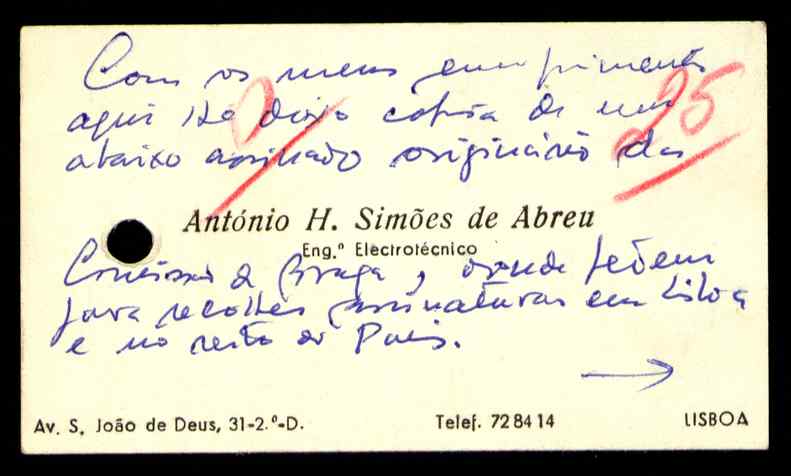 Com os meus cumprimentos
aqui lhe deixo cópia de um
abaixo assinado originário das
25
António H. Simões de Abreu
Eng.º Electrotécnico
de Braga, onde pedem
para recolher assinaturas em Lisboa
e no resto do País.
Av. S. João de Deus, 31-2.º-D.
Telef. 72 84 14
LISBOA